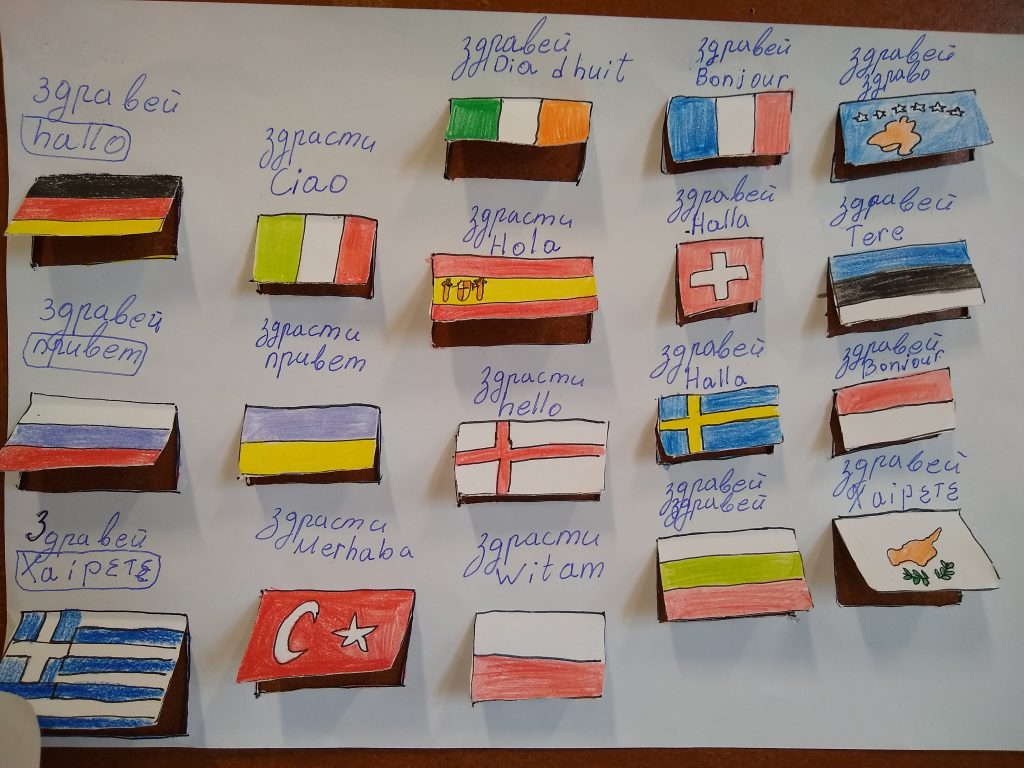 здравей
hallo
здравей
привет
Здравей
Χαίρετε
здрасти
Ciao
здрасти
привет
здрасти
Merhaba
здравей
Dia dhuit
здрасти
Hola
здрасти
hello
здрасти
witam
здравей
Bonjour
здравей
Halla
здравей
Halla
здравей
здравей
здравей
здраво
здравей
Tere
здравей
Bonjour
здравей
Χαίρετε